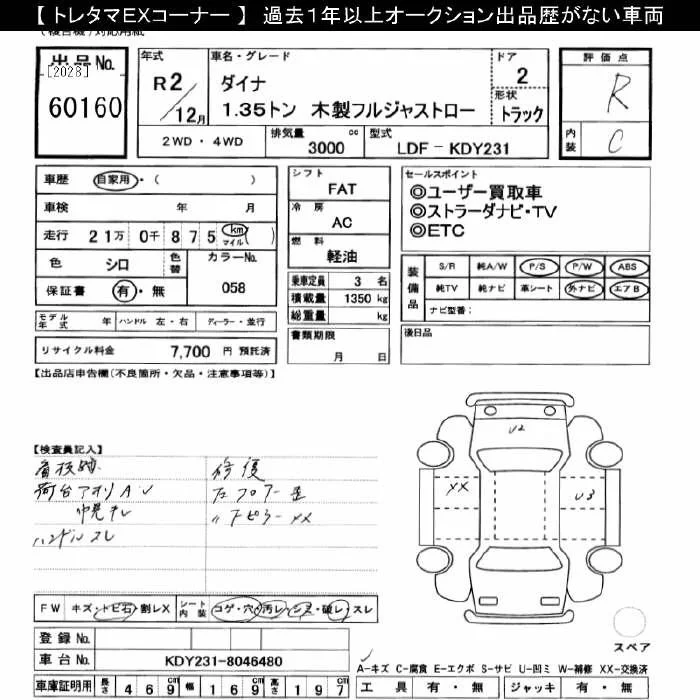 【 トレタマEXコーナー 】 過去1年以上オークション出品歴がない車両
出品No.
[2028]
60160
年式
R2/12月
車名・グレード
ダイナ
1.35トン 木製フルジャストロー
ドア
2
形状
トラック
評価点
R
内装
C
2WD・4WD
排気量 3000 cc
型式 LDF-KDY231
車歴 自家用・( )
車検 年 月
走行 21万 0千 875 km マイル ( )
色 シロ 色替
カラーNo. 058
保証書 有・無
シフト FAT
冷房 AC
燃料 軽油
乗車定員 3 名
積載量 1350 kg
総重量 kg
セールスポイント
◎ユーザー買取車
◎ストラーダナビ・TV
◎ETC
装備品
S/R 純A/W P/S P/W ABS
純TV 純ナビ 革シート 外ナビ エアB
ナビ型番:
モデル年式 年 ハンドル 左・右 ディーラー・並行
書類期限 月 日
後日品
リサイクル料金 7,700 円 預託済
【出品店申告欄(不良箇所・欠品・注意事項等)】
【検査員記入】
荷台アオリAU
ハンドル スレ
修復
U2
XX
U3
FW キズ・トビ石・割レX シート内装 コゲ・穴・汚レ・シミ・破レ・スレ
スペア
登録No.
車台No. KDY231-8046480
A-キズ C-腐食 E-エクボ S-サビ U-凹ミ W-補修 XX-交換済
車庫証明用 長さ 469 cm 幅 169 cm 高さ 197 cm
工具 有・無 ジャッキ 有・無